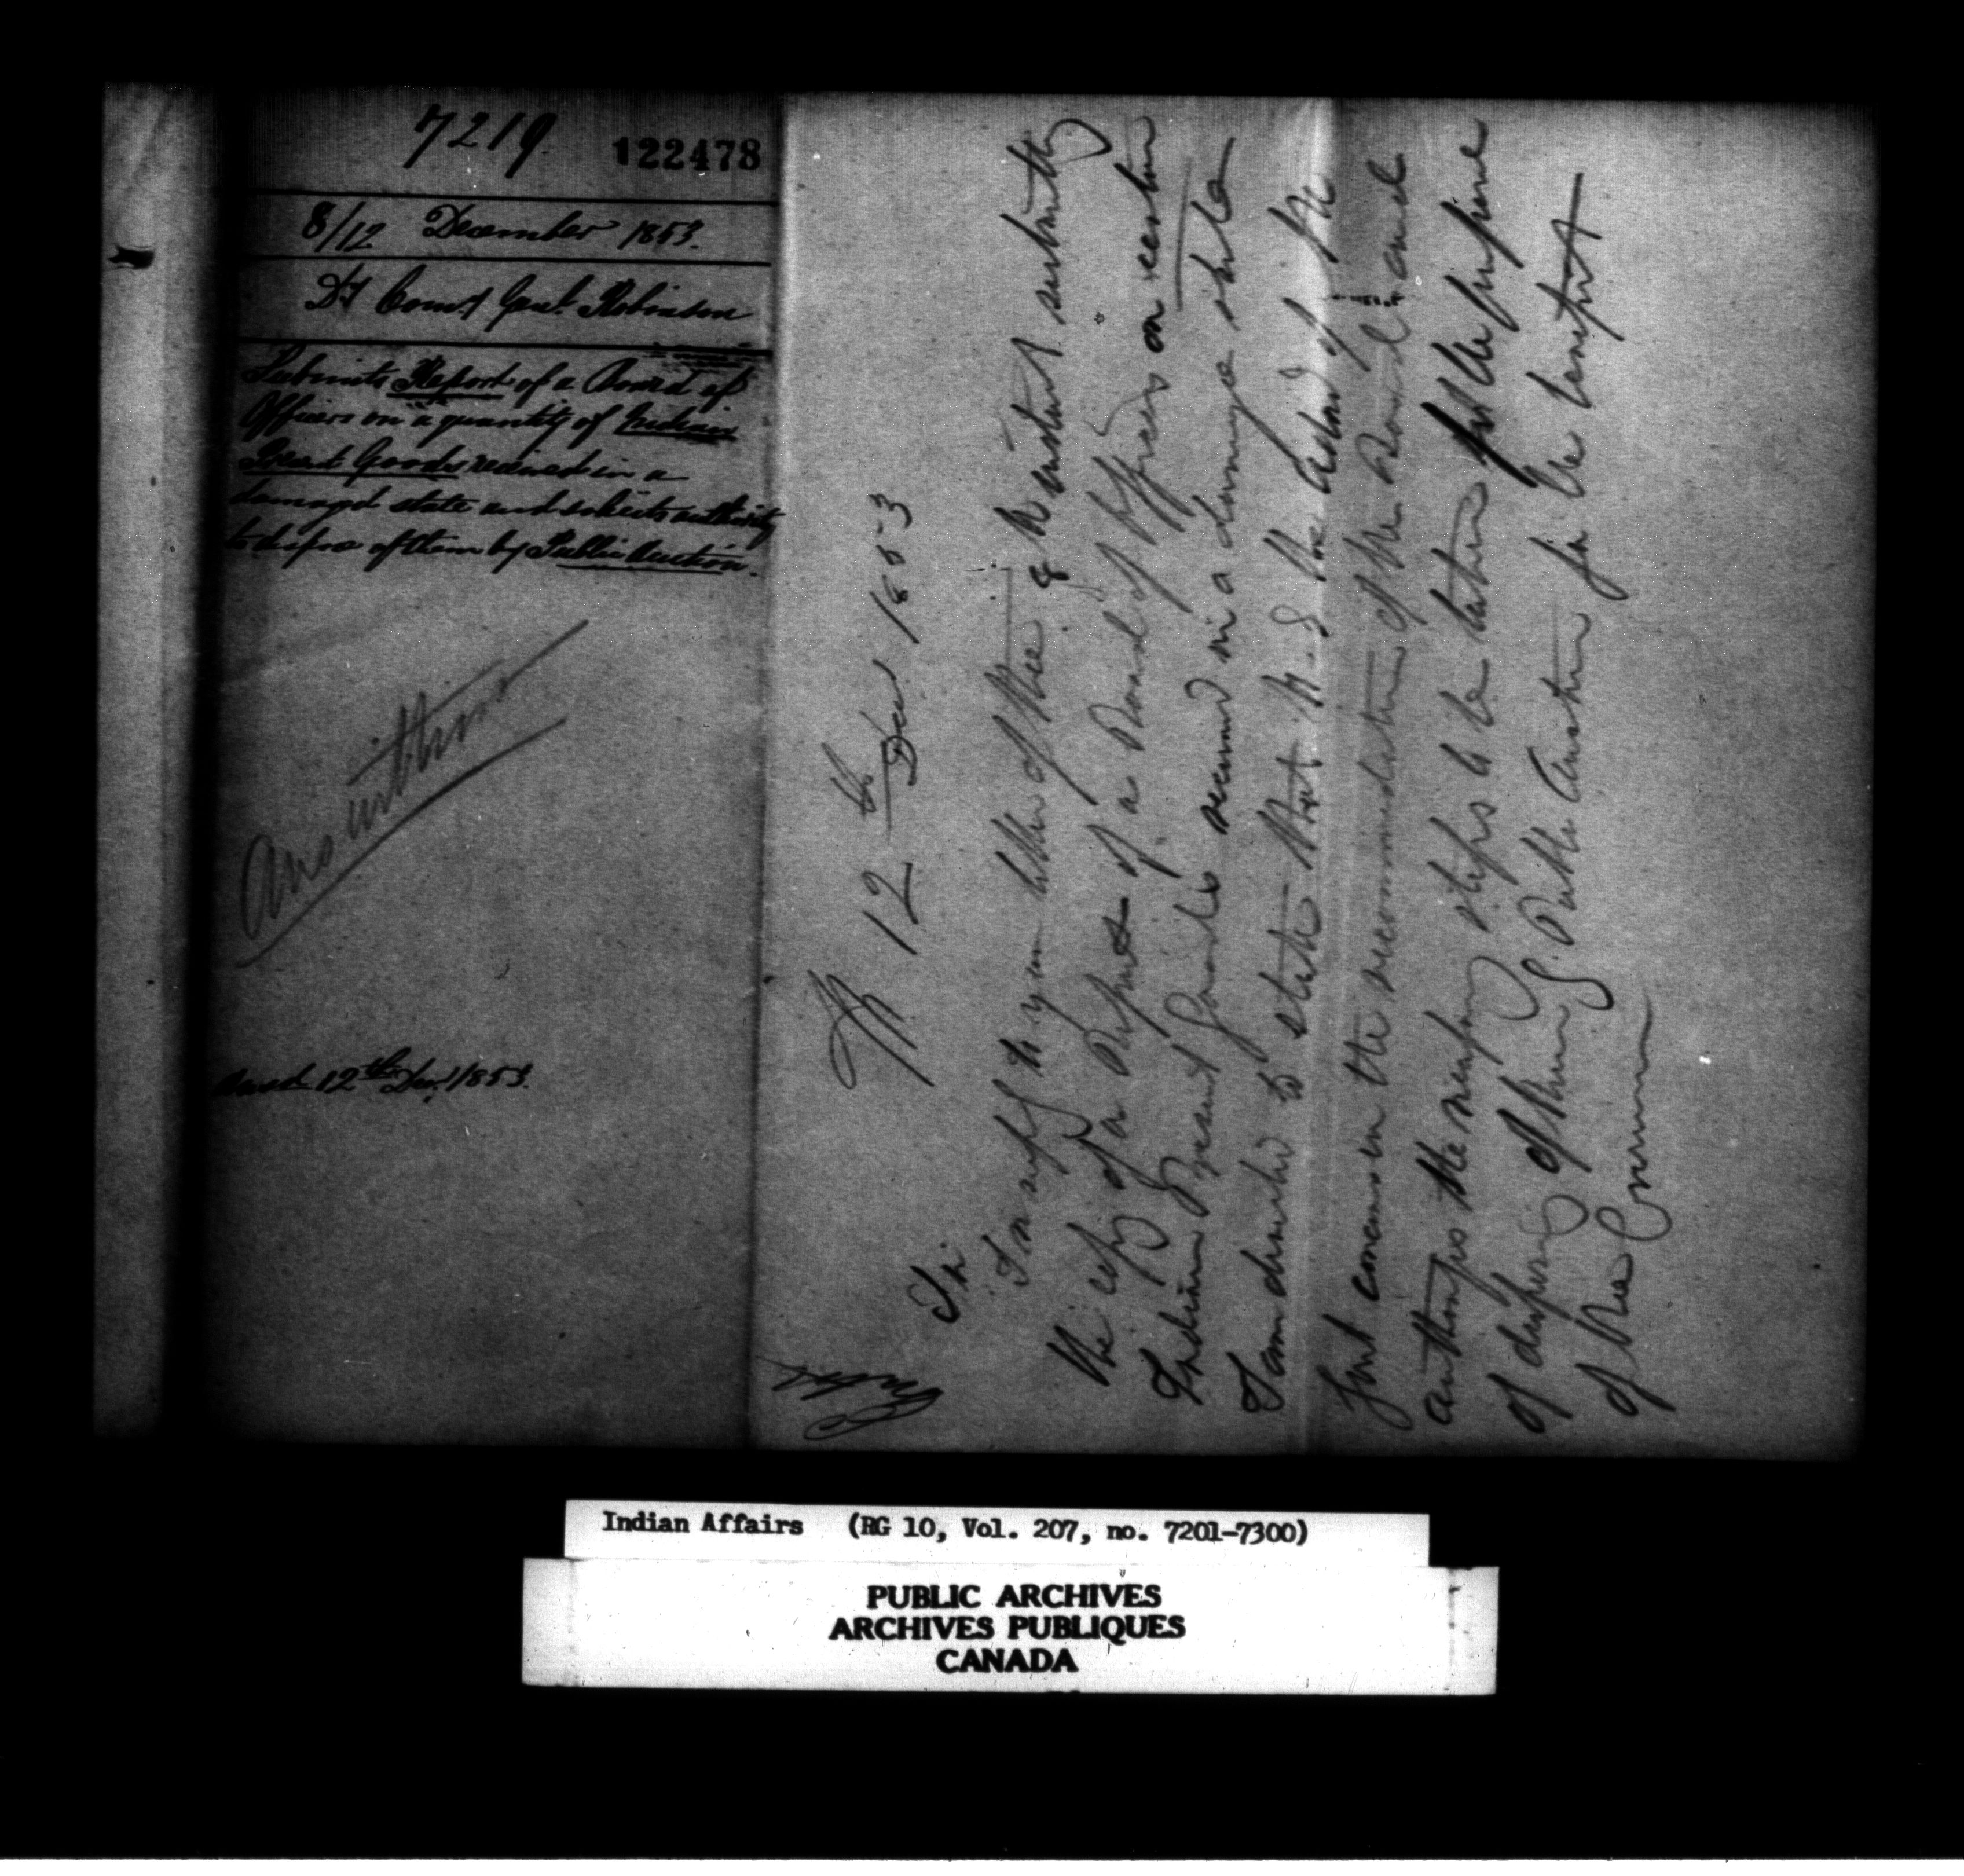 7219.
122478
8/12 December 1853.
Dy Comy Genl. Robinson
Submits Report of a Board of
Officers on a quantity of Indian
Present Goods received in a
damaged state and solicits authority
to dispose of them by Public Auction.
Ans within
Ansd. 12th Decr. 1853.
12th Decr 1853
Sir
In reply to your letter of the 8th instant submitting
the copy of a Report of a Board of Officers on certain
Indian Present Goods received in a damage state
I am directed to state that H. E. the of the
Govt concurs in the recommendation of the Board and
authorizes the necessary steps to be taken for the purpose
of disposing of them by Public Auction for the benefit
of the
Indian Affairs (RG 10, Vol. 207, no. 7201-7300)
PUBLIC ARCHIVES
ARCHIVES PUBLIQUES
CANADA